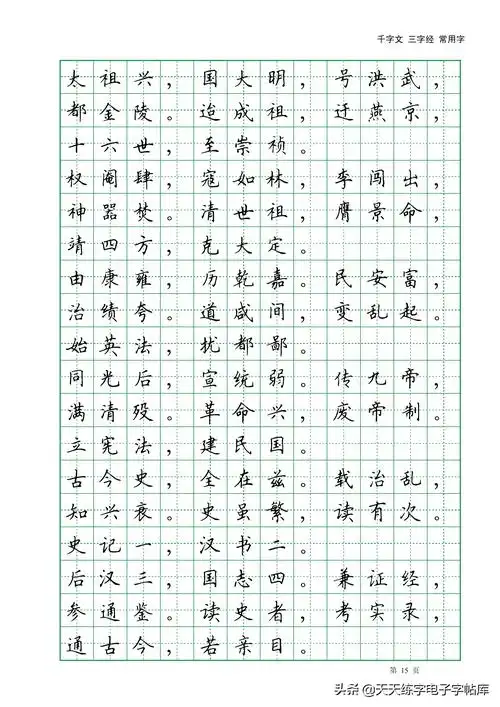 千字文 三字经 常用字
太祖兴，国大明，号洪武，
都金陵。迨成祖，迁燕京，
十六世，至崇祯。
权阉肆，寇如林，李闯出，
神器焚。清世祖，膺景命，
靖四方，克大定。
由康雍，历乾嘉。民安富，
治绩夸。道咸间，变乱起。
始英法，扰都鄙。
同光后，宣统弱。传九帝，
满清殁。革命兴，废帝制。
立宪法，建民国。
古今史，全在兹。载治乱，
知兴衰。史虽繁，读有次。
史记一，汉书二。
后汉三，国志四。兼证经，
参通鉴。读史者，考实录，
通古今，若亲目。
第 15 页
头条 @天天练字电子字帖库